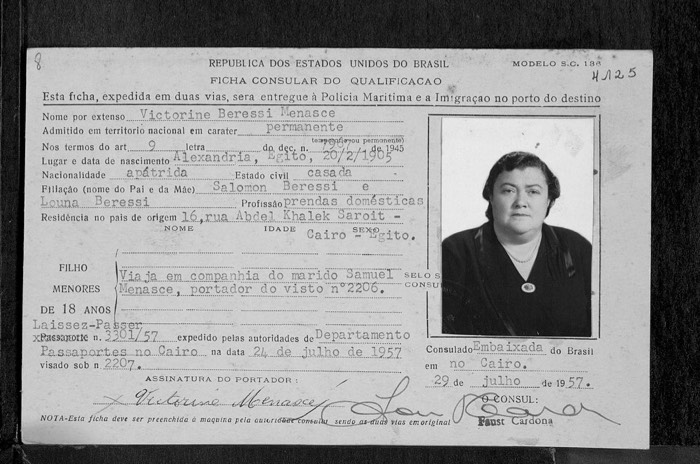 8
REPUBLICA DOS ESTADOS UNIDOS DO BRASIL
MODELO S.C. 138
4125
FICHA CONSULAR DO QUALIFICACAO
Esta ficha, expedida em duas vias, sera entregue à Polícia Marítima e a Imigraçao no porto do destino
Nome por extenso Victorine Beressi Menasce
Admitido em territorio nacional em carater permanente
(temporario ou permanente)
Nos termos do art 9 letra do dec. n. de 1945
Lugar e data de nascimento Alexandria, Egito, 20/2/1905
Nacionalidade apátrida Estado civil casada
Filiação (nome do Pai e da Mãe) Salomon Beressi e
Louna Beressi Profissão prendas domésticas
Residência no pais de origem 16,rua Abdel Khalek Saroit -
NOME IDADE SEXO
Cairo - Egito.
FILHO
MENORES
DE 18 ANOS
Viaja em companhia do marido Samuel
Menasce, portador do visto nº2206.
SELO S
CONSU
Laissez-Passer
Passaporte n. 3301/57 expedido pelas autoridades de Departamento
Passaportes no Cairo na data 24 de julho de 1957
visado sob n 2207.
Consulado Embaixada do Brasil
em no Cairo.
29 de julho de 1957.
ASSINATURA DO PORTADOR :
Victorine Menasce
O CONSUL:
Faust Cardona
NOTA-Esta ficha deve ser preenchida à maquina pela autoridade consular sendo as duas vias em original